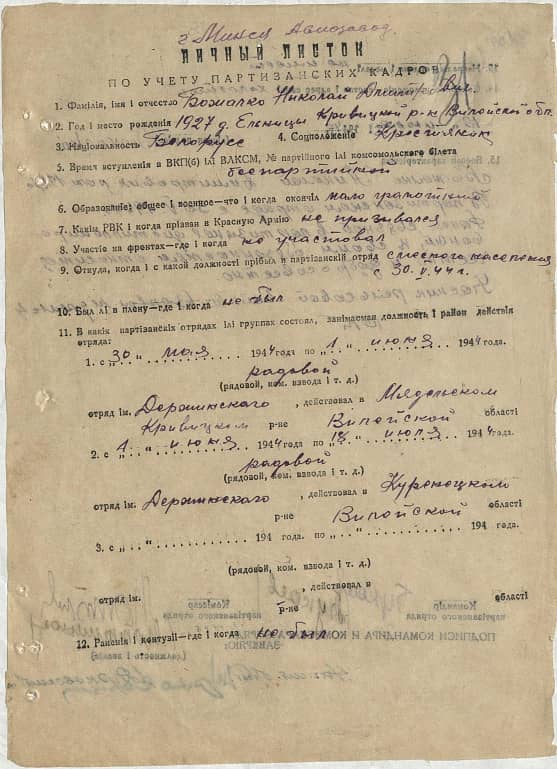 г. Минск Авиозавод.
ЛИЧНЫЙ ЛИСТОК
ПО УЧЕТУ ПАРТИЗАНСКИХ КАДРОВ
1. Фамілія, імя і отчество Божалко Николай Дмитрович
2. Год і место рождения 1927 д. Ельницы Кривицкий р-н Вилейской обл.
3. Національность Белорусс 4. Соцположение Крестьянин
5. Время вступления в ВКП(б) ілі ВЛКСМ, № партійного ілі комсомольского білета
беспартийный
6. Образованіе: общее і военное—что і когда окончіл мало грамотный
7. Какім РВК і когда прізван в Красную Армію не призывался
8. Участіе на фронтах—где і когда не участвовал
9. Откуда, когда і с какой должності прібыл в партізанскій отряд с местного населения
с 30.V.44 г.
10. Был лі в плену—где і когда не был
11. В какіх партізанскіх отрядах ілі группах состоял, занімаемая должность і район действія
отряда:
1. с „30„ мая 1944 года по „1„ июня 1944 года.
радовой
(рядовой, ком. взвода і т. д.)
отряд ім. Держинского, действовал в Мядельском
Кривицком р-не Вилейской області
2. с „1„ июня 1944 года по „18„ июля 1944 года.
радовой
(рядовой, ком. взвода і т. д.)
отряд ім. Держинского, действовал в Куренецком
р-не Вилейской області
3. с „ „ 194 года. по „ „ 194 года.
(рядовой, ком. взвода і т. д.)
отряд ім. , действовал в
р-не області
12. Раненія і контузіі—где і когда не был